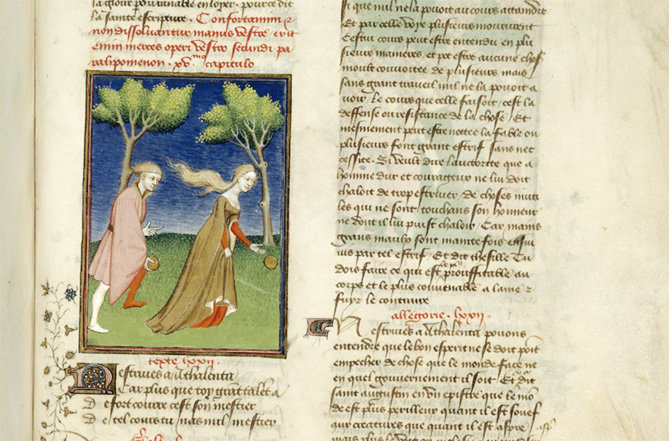 la gloire pourmable en loyer. pource dit
la sainte escripture. Confortamini et
non dissoluantur manus vestre. erit
enim merces operi vestro secundi pa
palipomenon. xv.mo capitulo
texte lxxii
Nestrives a Athalenta
Car plus que toy grant talet a
De fort courre cest son mestier
De tel cours tu nas mil mestier
si que nul ne la povoit au cours attaindre
Et par celle voye plusieurs moururent
Cestui cours peut estre entendu en plu
sieurs manieres. et peut estre aucune chose
moult couvoitee de plusieurs mais
sans grant travail nul ne la povoit a
voir. Le cours que celle faisoit. cest la
deffense ou resistance de la chose. Et
mesmement peut estre notee la fable ou
plusieurs font grant estrif sans nec
cessite. Si veult dire lauctorite que a
homme dur et courageux ne lui doit
chaloir de trop estriver. de choses inuti
les qui ne sont touchans son honneur
ne dont il lui puist chaloir. Car mains
grans maulx sont maintefois ensui
vis par tel estrif. Et dit thesille Tu
dois faire ce qui est le plus prouffitable au
corps et le plus convenable a lame et
fuyr le contraire
allegorie. lxxii.
Nestrives a Athalenta povons
entendre que le bon esperit ne se doit point
empescher de chose que le monde face ne
en quel gouvernement il soit. Et dit
saint augustin en un epistre que le mon
de est plus perilleux quant il est souef
aux creatures que quant il est aspre.